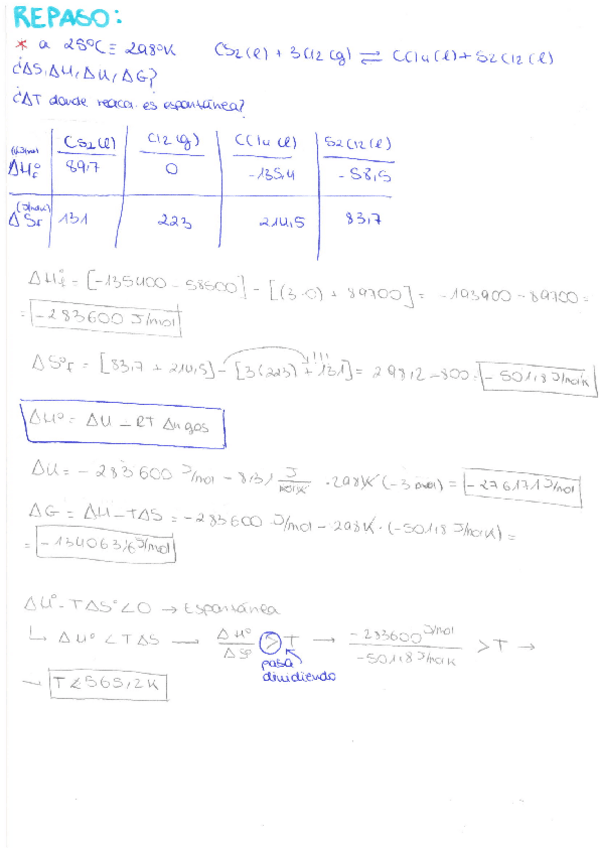 REPASO:
* a 25ºC ≡ 298ºK CS2(l) + 3Cl2(g) ⇌ CCl4(l) + S2Cl2(l)
¿ΔS, ΔH, ΔU, ΔG?
¿ΔT donde reacc. es espontánea?
CS2(l) Cl2(g) CCl4(l) S2Cl2(l)
(kJ/mol) ΔHºf 89,7 0 -135,4 -58,5
(J/molK) ΔSºf 131 223 214,5 83,7
ΔHºf = [-135400 - 58500] - [(3·0) + 89700] = -193900 - 89700 =
= -283600 J/mol
ΔSºf = [83,7 + 214,5] - [3(223) + 131] = 298,2 - 800 = -501,8 J/molK
!!!
ΔHº = ΔU - RT Δngas
ΔU = -283600 J/mol - 8,31 J/molK · 298K (-3 mol) = -276171 J/mol
ΔG = ΔH - TΔS = -283600 J/mol - 298K · (-501,8 J/molK) =
= -134063,6 J/mol
ΔHº - TΔSº < 0 → Espontánea
↳ ΔHº < TΔS → ΔHº/ΔSº > T → -283600 J/mol / -501,8 J/molK > T →
pasa
dividiendo
→ T < 565,2 K